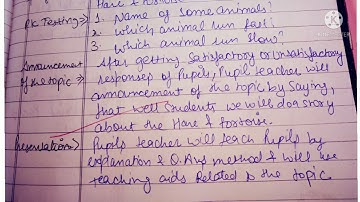 Hare & 
P.K Testing ⇒ 1. Name of some animals?
2. which animal run fast?
3. which animal run slow?
Announcement of the topic ⇒ After getting satisfactory or unsatisfactory
responses of Pupils, Pupil teacher will
announcement of the topic by saying,
that well students we will do a story
about the Hare & tortoise.
Presentation ⇒ Pupils teacher will teach Pupils by
explanation & Q. Ans method & will use
teaching aids Related to the topic